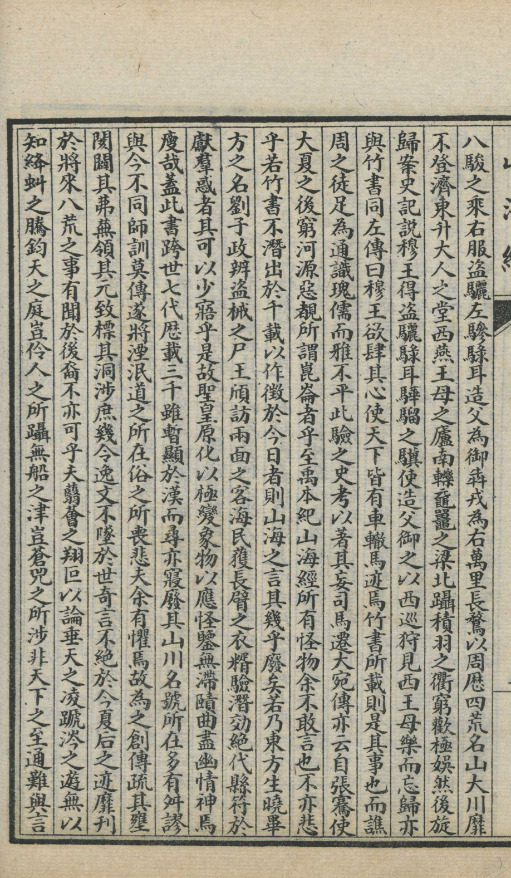 八駿之乘右服盜驪左驂騄耳造父為御犇戎為右萬里長騖以周歴四荒名山大川靡
不登濟東升大人之堂西燕王母之廬南轢黿鼉之梁北躡積羽之衢窮歡極娱然後旋
歸案史記說穆王得盜驪騄耳驊騮之驥使造父御之以西巡狩見西王母樂而忘歸亦
與竹書同左傳曰穆王欲肆其心使天下皆有車轍馬迹焉竹書所載則是其事也而譙
周之徒足為通識瑰儒而雅不平此驗之史考以著其妄司馬遷大宛傳亦云自張騫使
大夏之後窮河源惡覩所謂崑崙者乎至禹本紀山海經所有怪物余不敢言也不亦悲
乎若竹書不潛出於千載以作徵於今日者則山海之言其幾乎廢矣若乃東方生曉畢
方之名劉子政辨盜械之尸王頎訪兩面之客海民獲長臂之衣精驗潛効絶代縣符於
戲羣惑者其可以少寤乎是故聖皇原化以極變象物以應怪鑒無滯賾曲盡幽情神焉
廋哉蓋此書跨世七代歴載三千雖暫顯於漢而尋亦寢廢其山川名號所在多有舛謬
與今不同師訓莫傳遂將湮泯道之所在俗之所喪悲夫余有懼焉故為之創傳疏其壅
閡闢其茀蕪領其元致標其洞涉庶幾令逸文不墜於世奇言不絶於今夏后之迹靡刊
於將來八荒之事有聞於後裔不亦可乎夫蘙薈之翔叵以論垂天之凌蹏涔之遊無以
知絳虯之騰鈞天之庭豈伶人之所躡無船之津豈蒼兕之所涉非天下之至通難與言